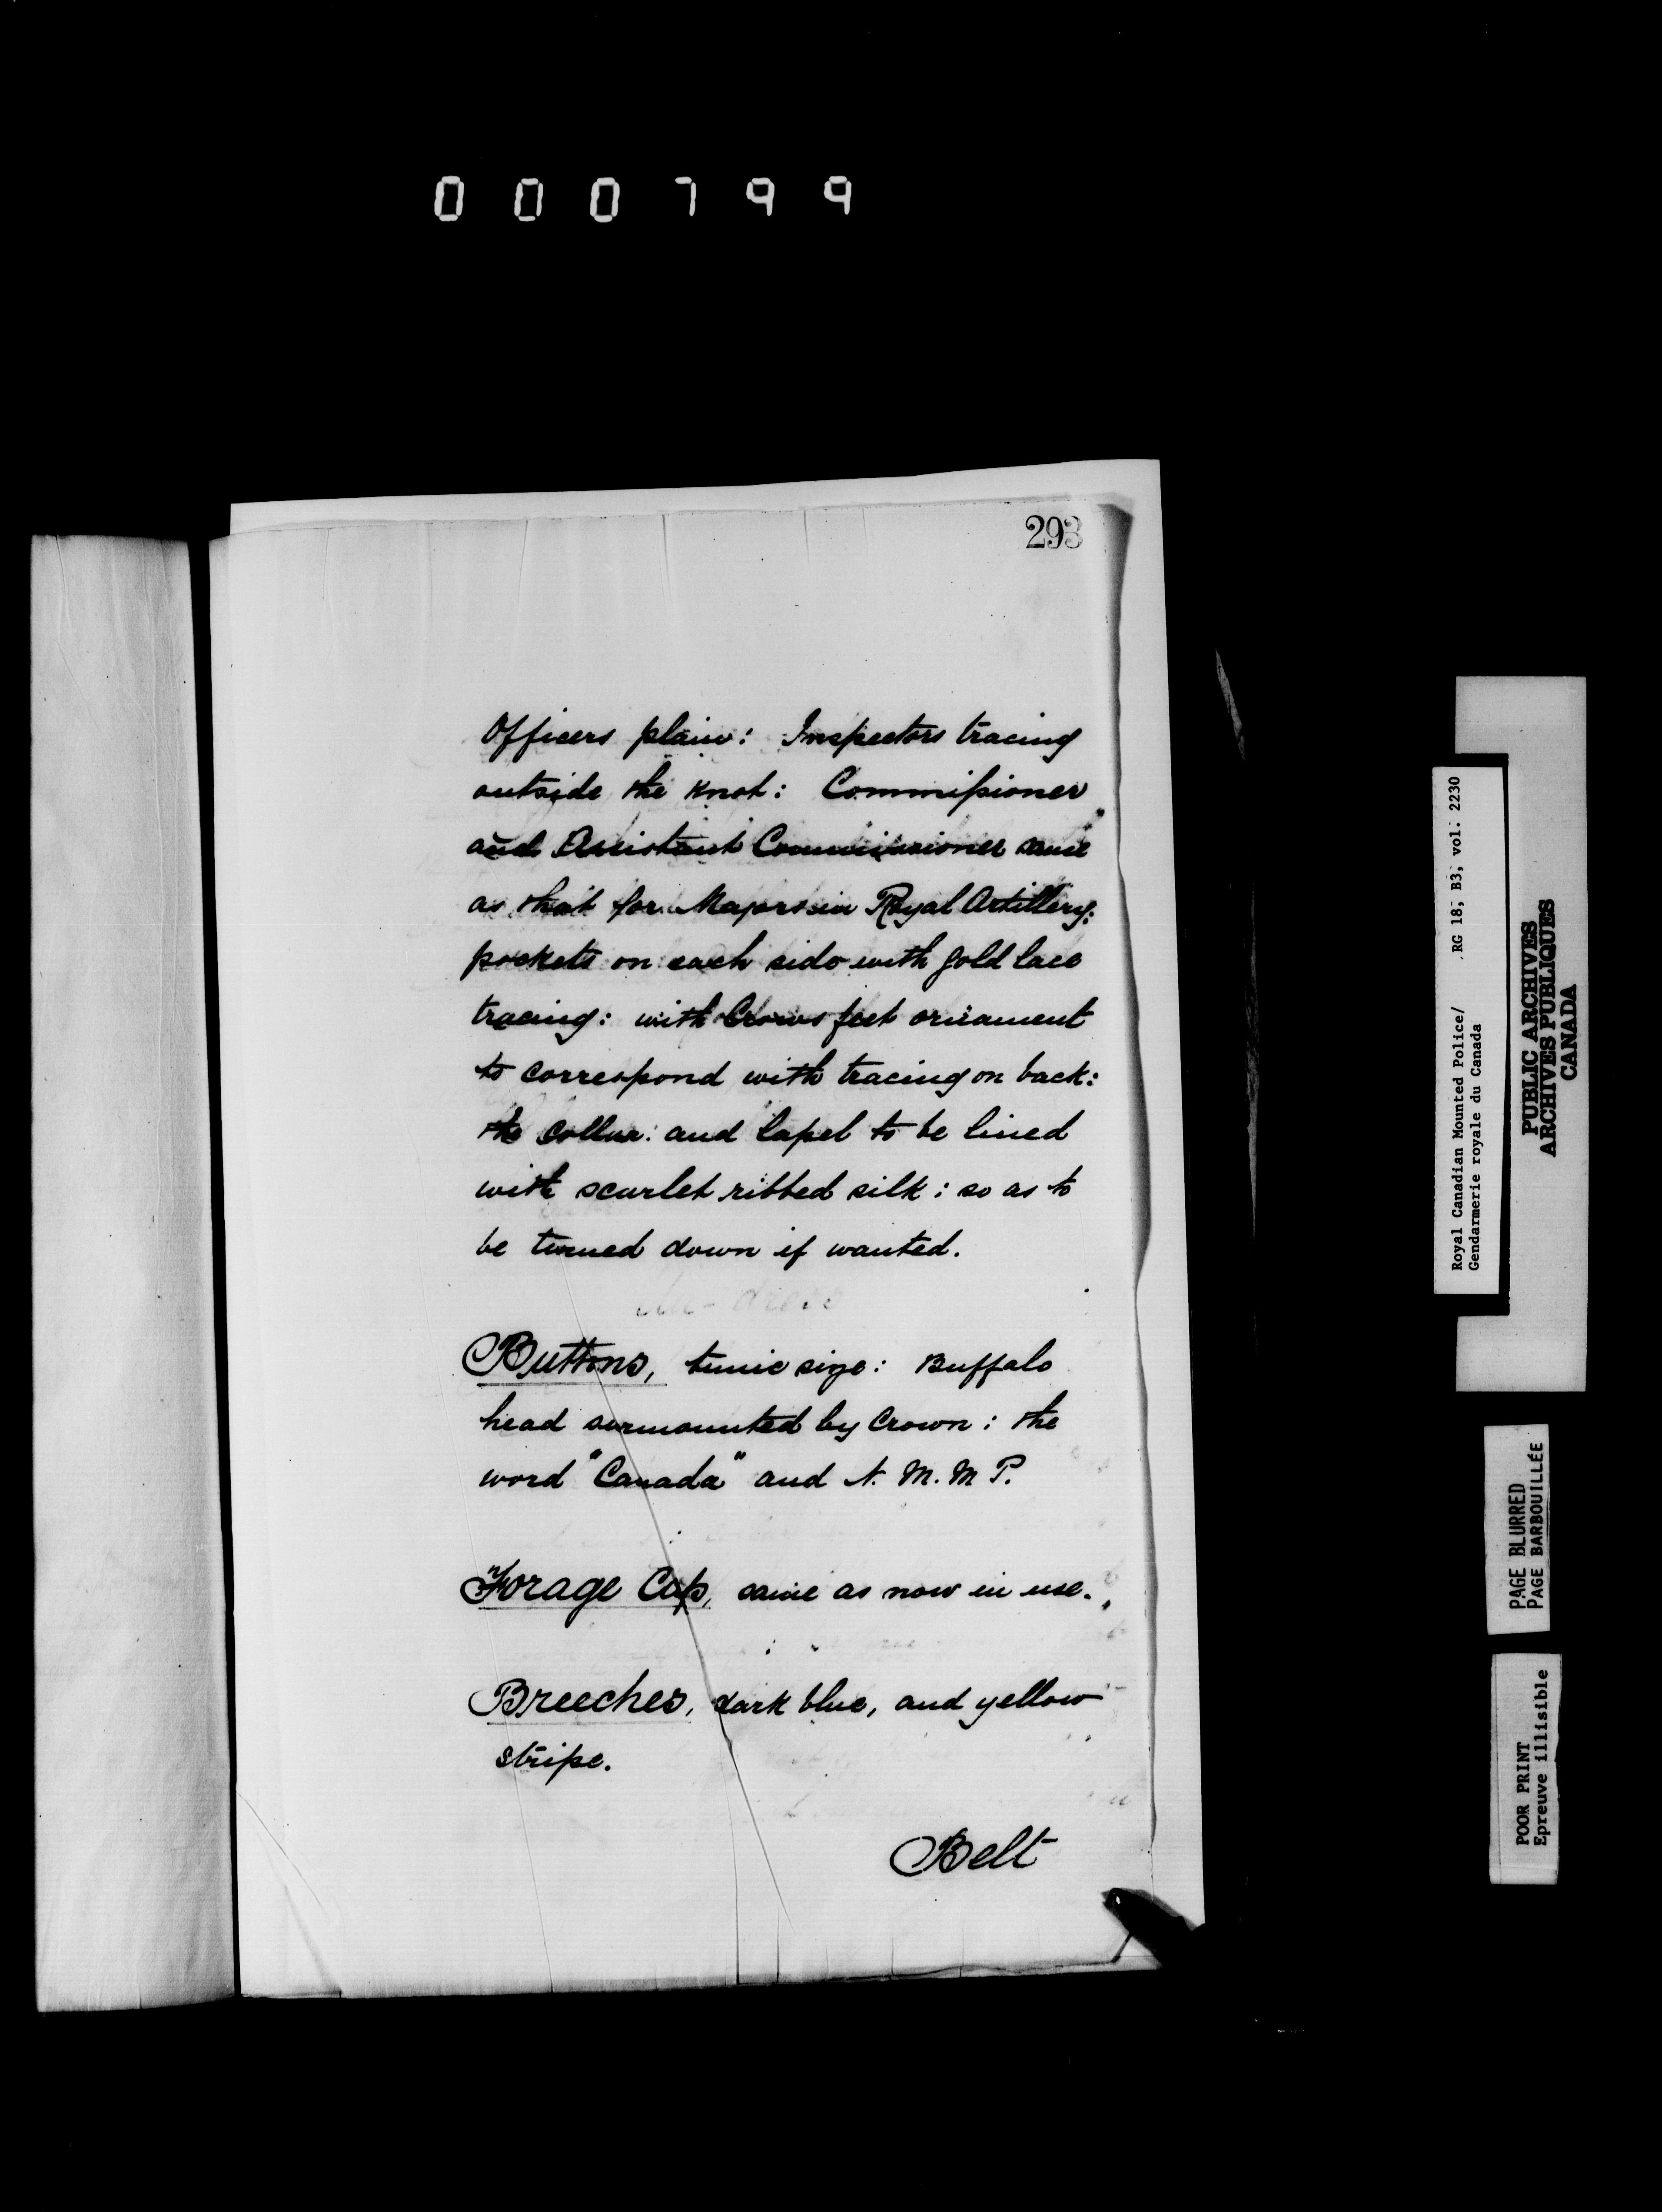 000799
293
Officers plain: Inspectors tracing
outside the knot: Commissioner
and Assistant Commissioner same
as that for Majors in Royal Artillery:
pockets on each side with gold lace
tracing: with Crows feet ornament
to correspond with tracing on back:
the collar: and lapel to be lined
with scarlet ribbed silk: so as to
be turned down if wanted.
Buttons, tunic size: Buffalo
head surmounted by Crown: the
word "Canada" and N. M. M P.
Forage Cap, same as now in use.
Breeches, dark blue, and yellow
stripe.
Belt
Royal Canadian Mounted Police/ RG 18, B3, vol. 2230
Gendarmerie royale du Canada
PUBLIC ARCHIVES
ARCHIVES PUBLIQUES
CANADA
PAGE BLURRED
PAGE BARBOUILLÉE
POOR PRINT
Epreuve illisible